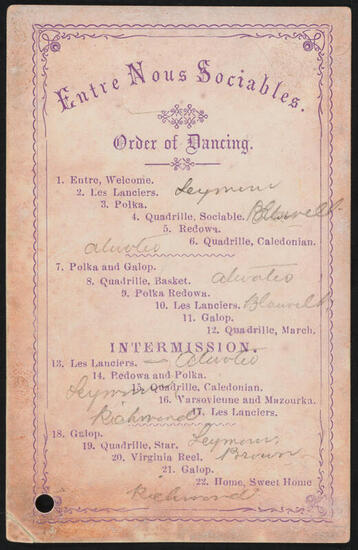 Entre Nous Sociables.
Order of Dancing.
1. Entre, Welcome.
2. Les Lanciers. Seymour
3. Polka.
4. Quadrille, Sociable. Blauvelt
5. Redowa.
6. Quadrille, Caledonian.
7. Polka and Galop.
8. Quadrille, Basket.
9. Polka Redowa.
10. Les Lanciers. Blauvelt
11. Galop.
12. Quadrille, March.
INTERMISSION.
13. Les Lanciers.
14. Redowa and Polka.
Seymour 15. Quadrille, Caledonian.
16. Varsovienne and Mazourka.
Richmond 17. Les Lanciers.
18. Galop.
19. Quadrille, Star. Seymour
20. Virginia Reel. Brown
21. Galop.
22. Home, Sweet Home
Richmond